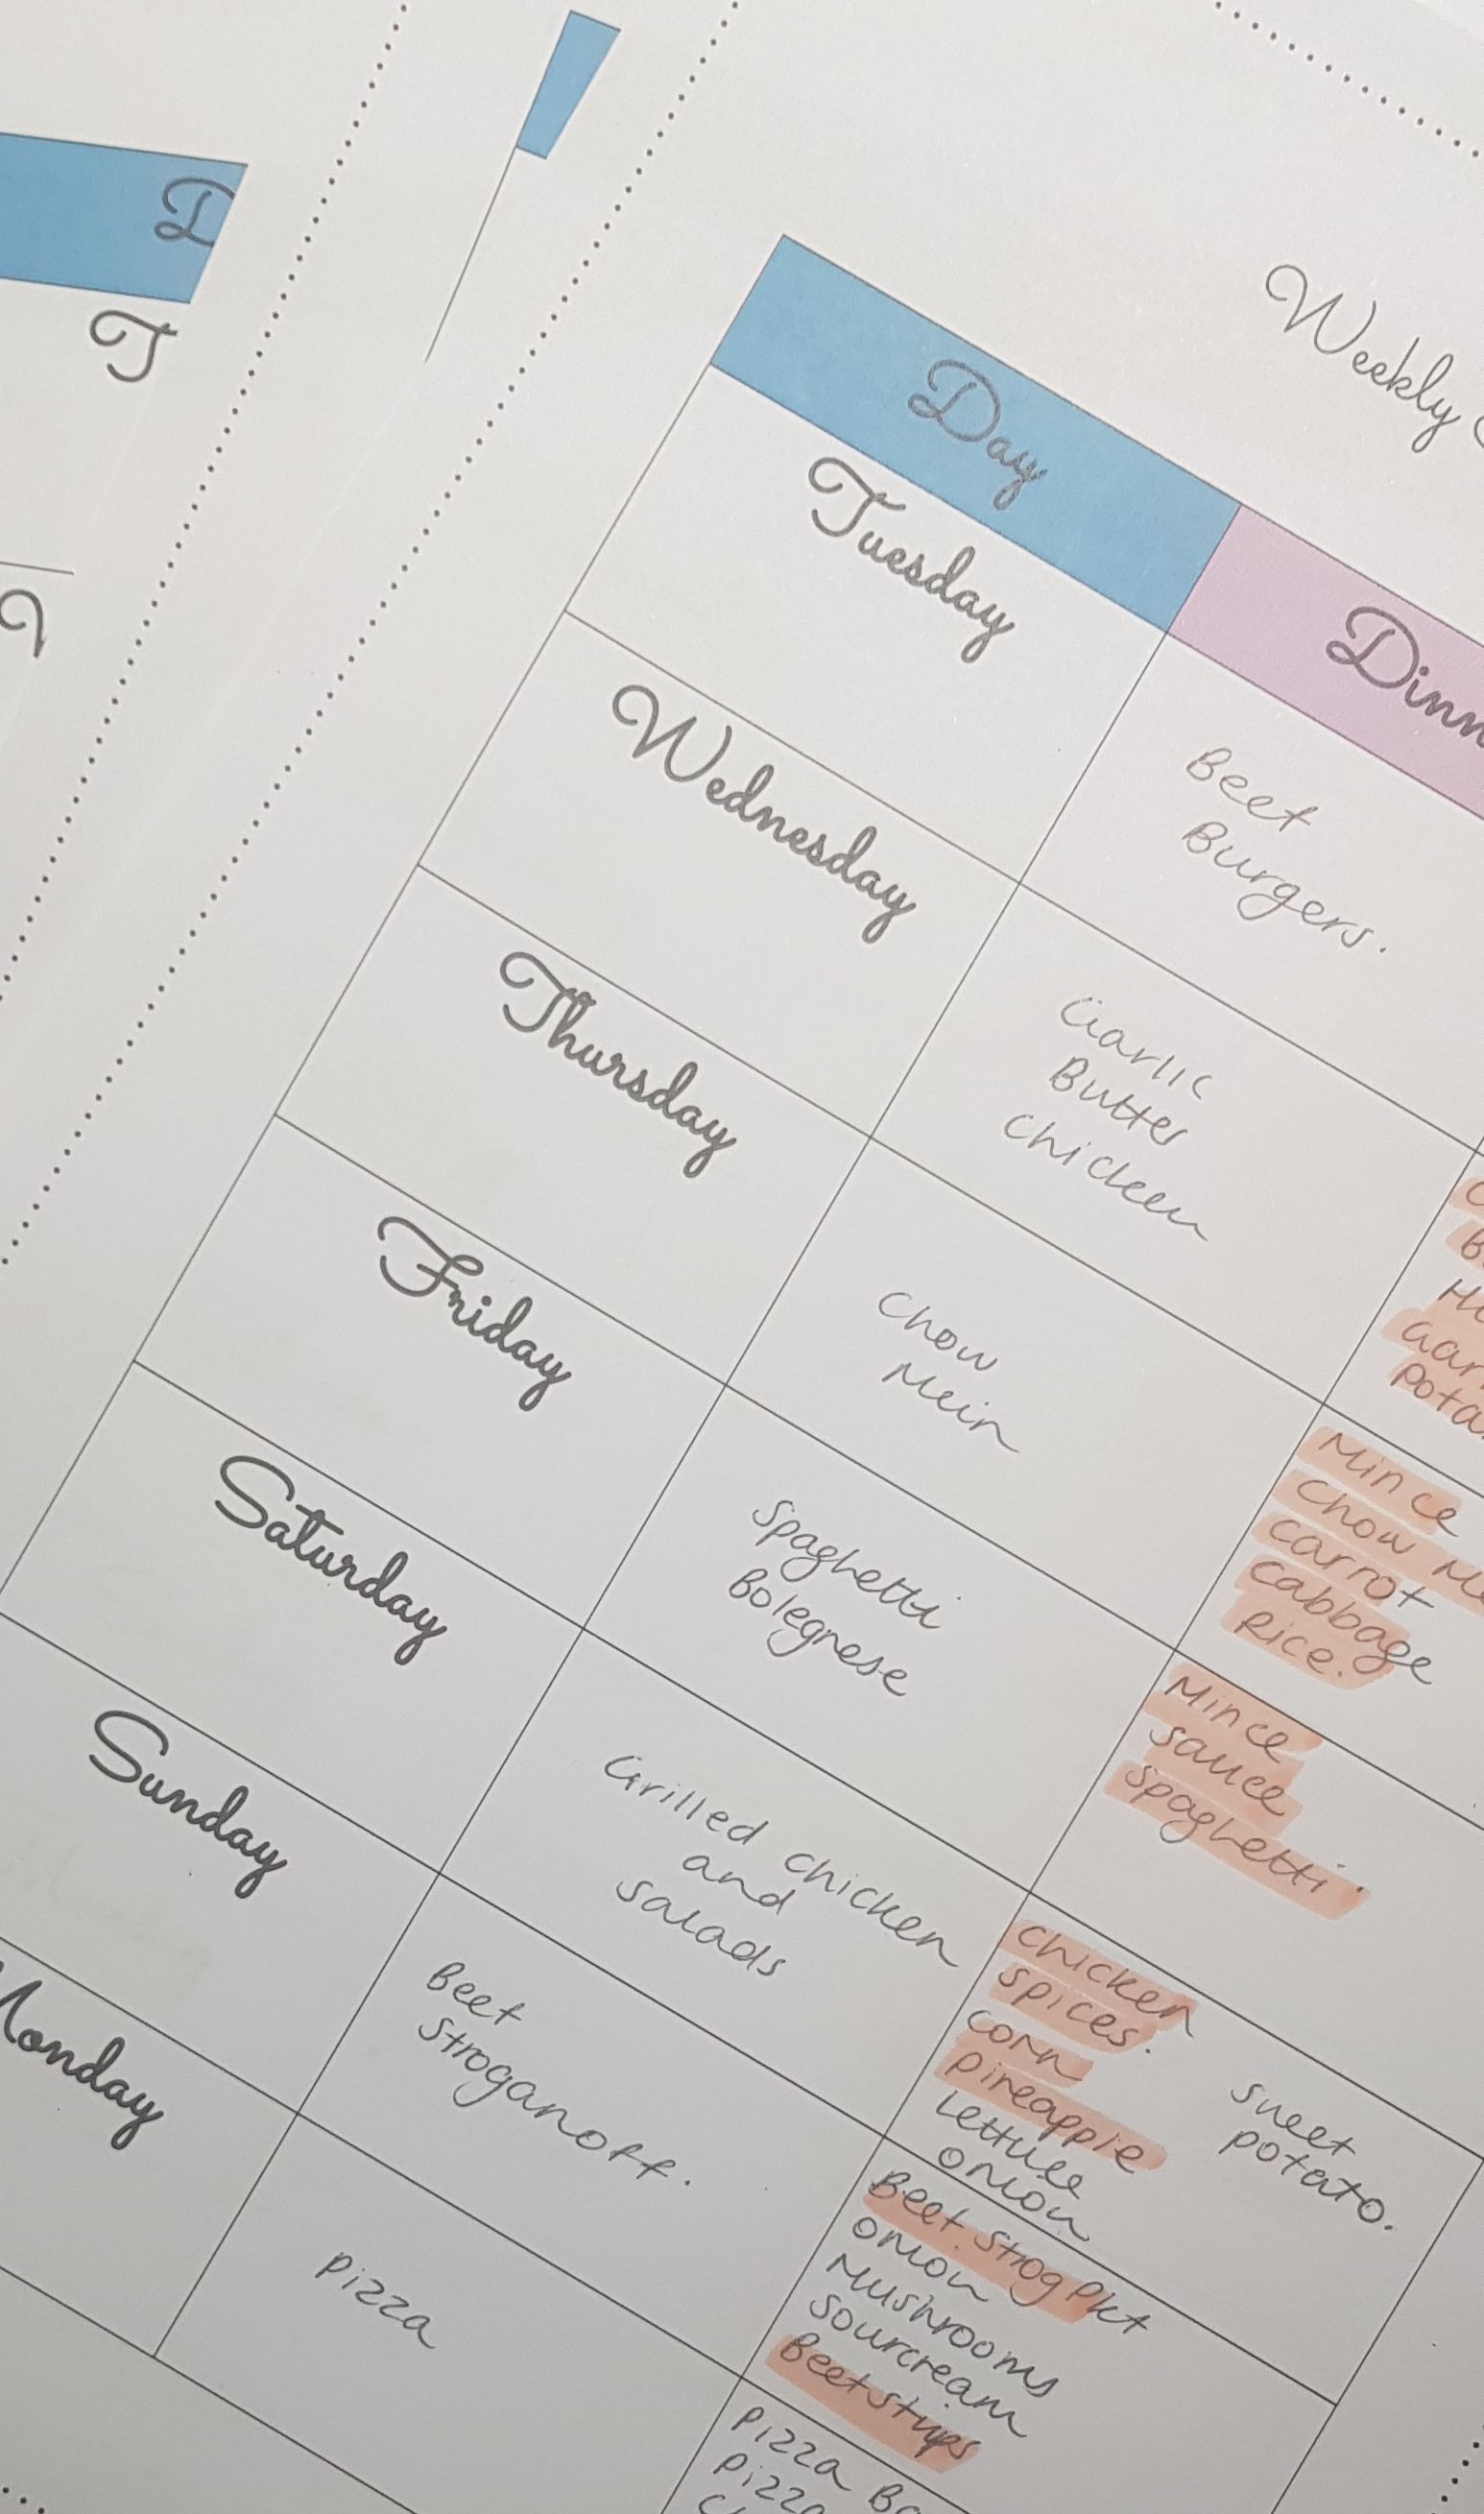 Weekly
Day
Tuesday
Beef
Burgers.
Wednesday
Garlic
Butter
Chicken
Thursday
Chow
Mein
Mince
Chow
carrot
cabbage
Rice.
Friday
Spaghetti
Bolegnese
Mince
sauce
spaghetti.
Saturday
Grilled chicken
and
salads
chicken
spices.
corn
pineapple
lettuce
onion
sweet
potato.
Sunday
Beef
Stroganoff.
Beef Strog Pkt
onion
Mushrooms
sourcream
Beef strips
Monday
Pizza
Pizza